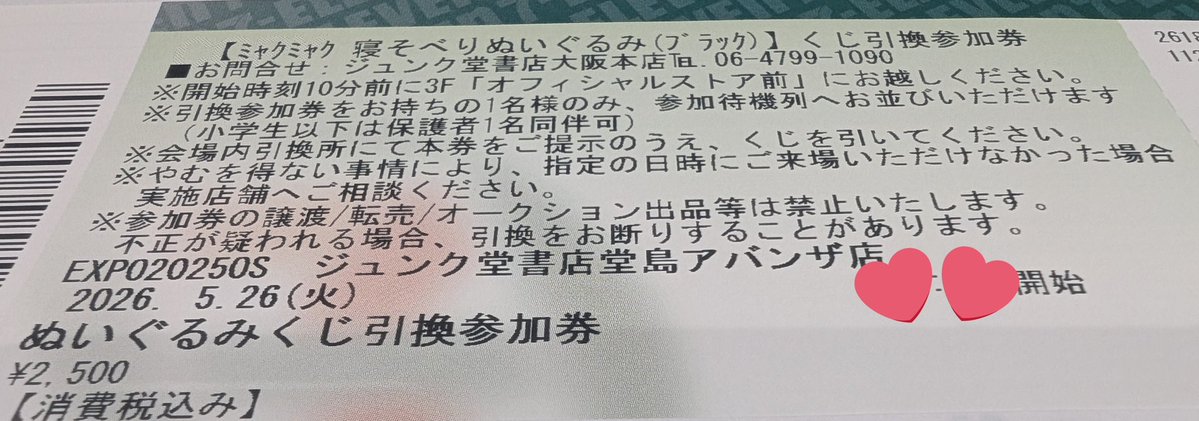 7-ELEVEN
【ﾐｬｸﾐｬｸ 寝そべりぬいぐるみ(ﾌﾞﾗｯｸ)】くじ引換参加券
■お問合せ:ジュンク堂書店大阪本店℡.06-4799-1090
※開始時刻10分前に3F「オフィシャルストア前」にお越しください。
※引換参加券をお持ちの1名様のみ、参加待機列へお並びいただけます
(小学生以下は保護者1名同伴可)
※会場内引換所にて本券をご提示のうえ、くじを引いてください。
※やむを得ない事情により、指定の日時にご来場いただけなかった場合
実施店舗へご相談ください。
※参加券の譲渡/転売/オークション出品等は禁止いたします。
不正が疑われる場合、引換をお断りすることがあります。
EXPO2025OS ジュンク堂書店堂島アバンザ店
2026. 5.26(火) 開始
ぬいぐるみくじ引換参加券
¥2,500
【消費税込み】
2618